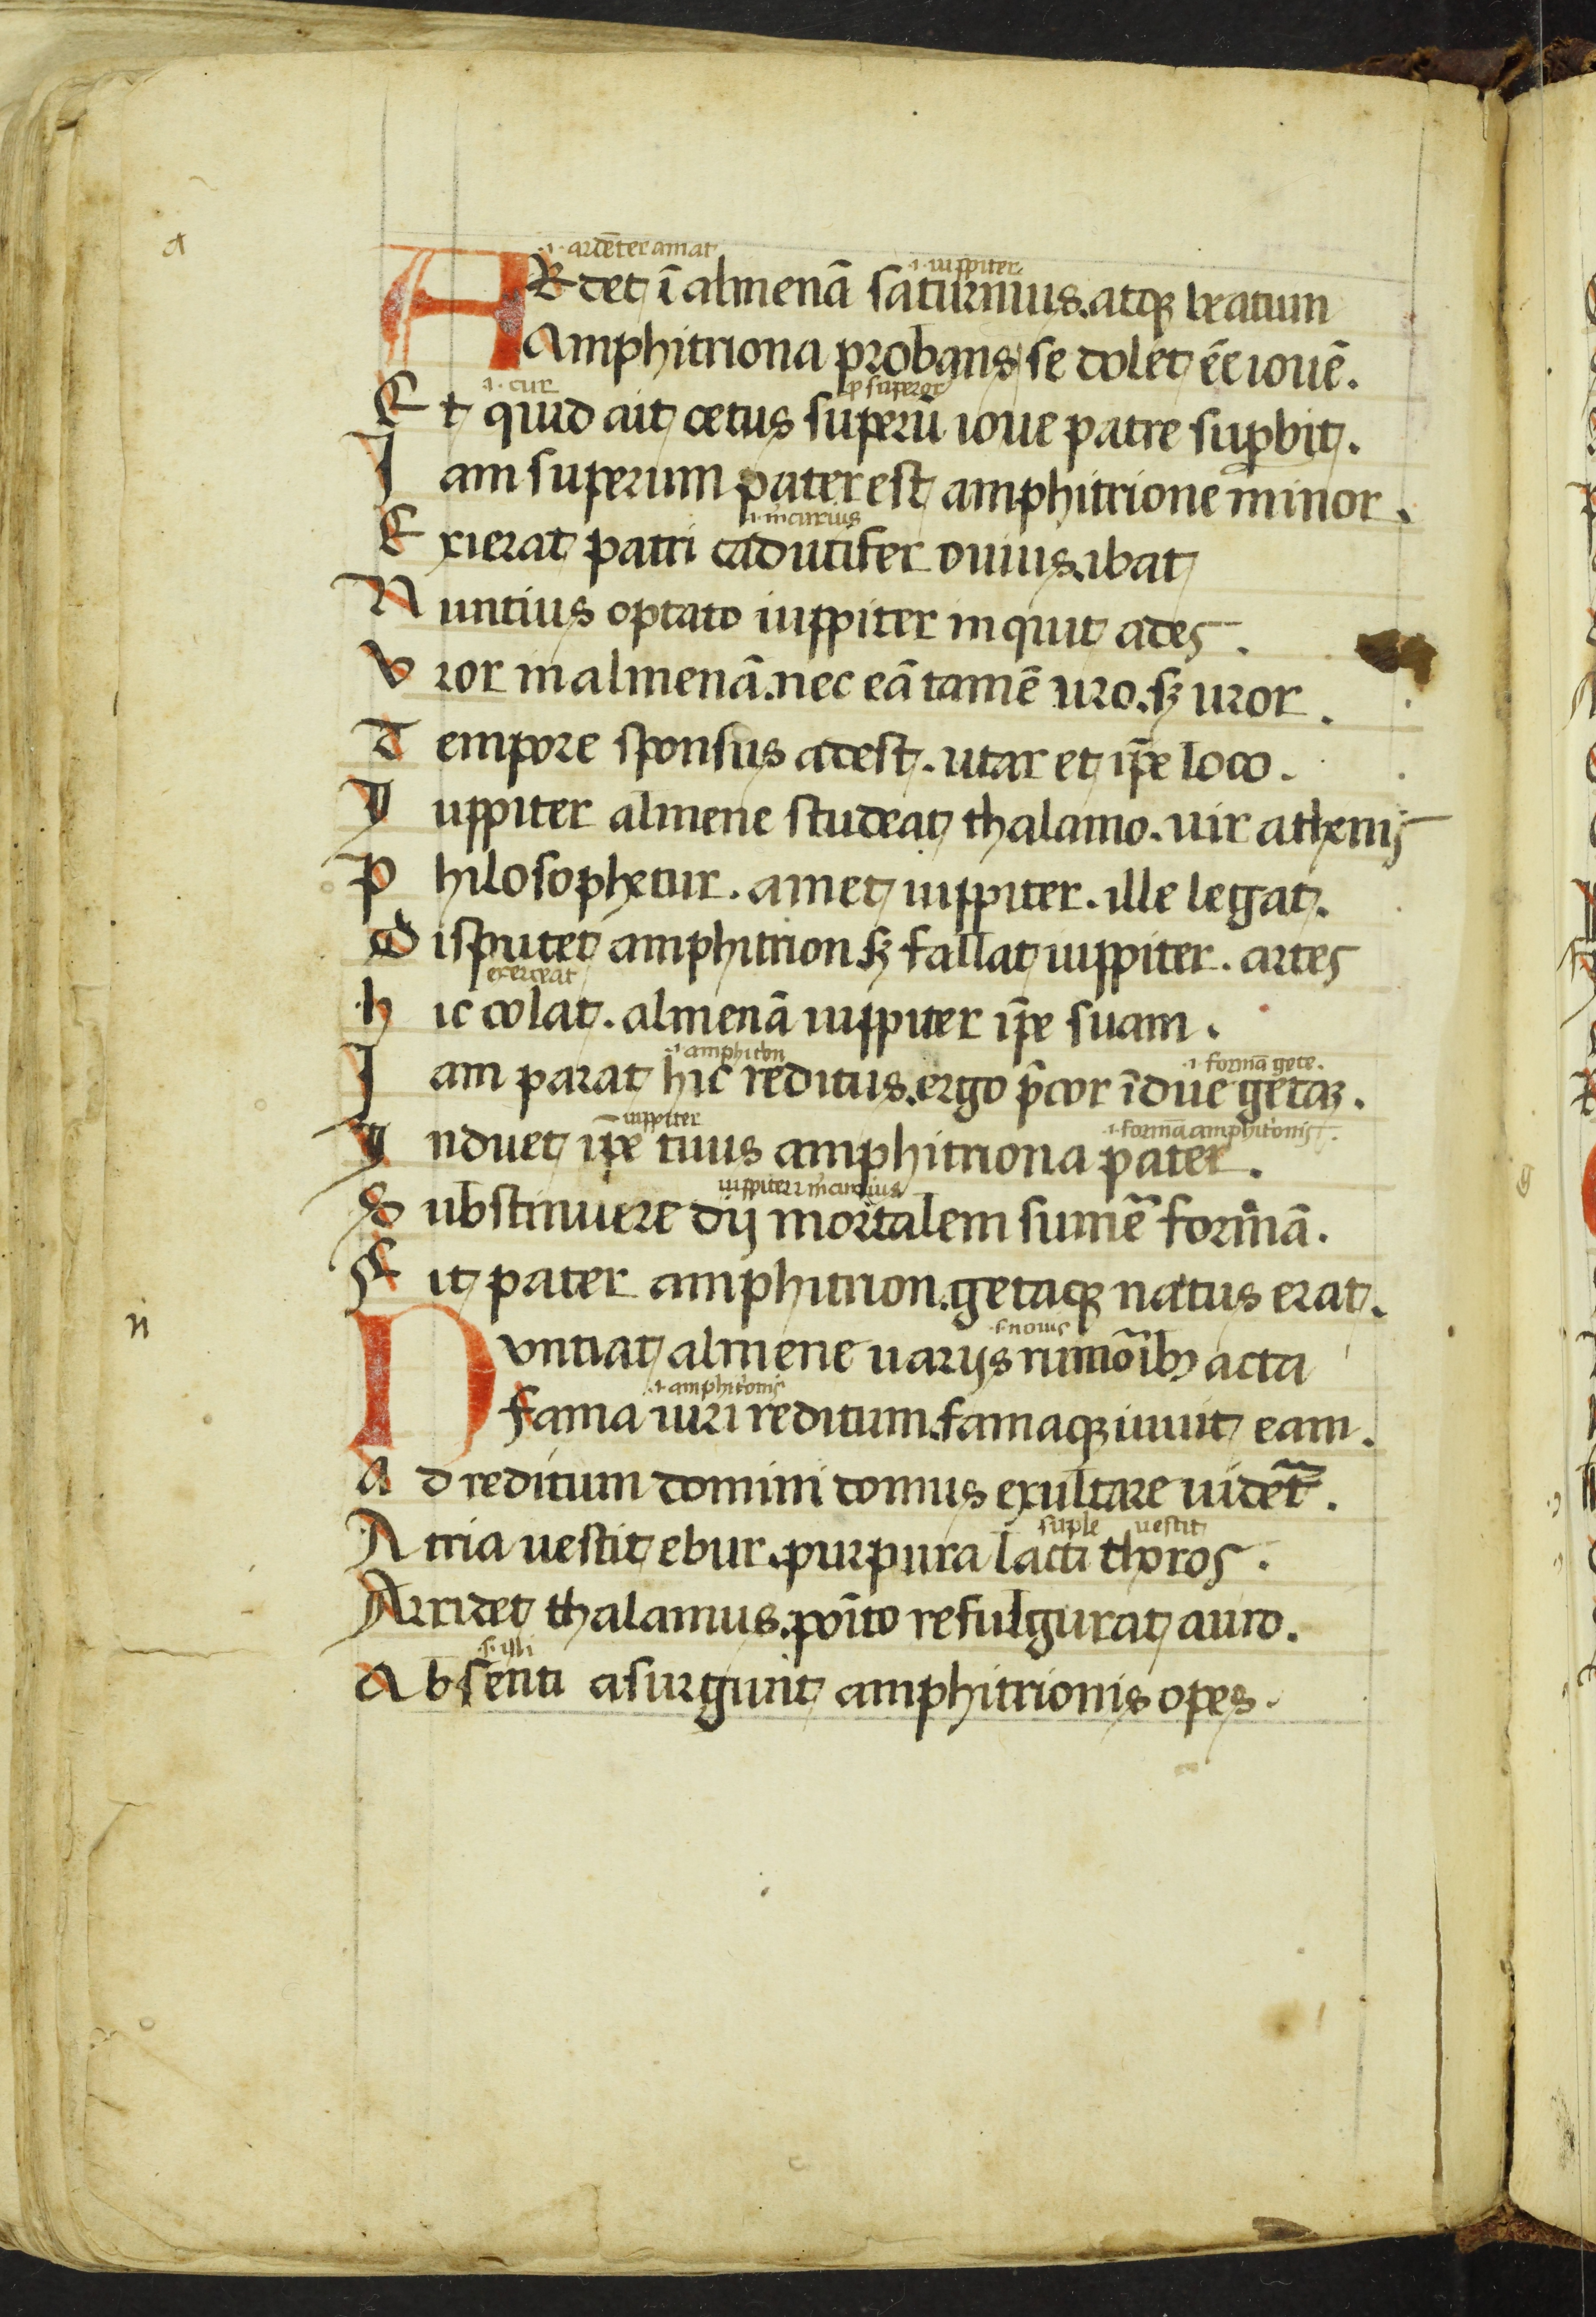 a
.i. ardēter amat
.i. iuppiter
ARdet ī almenā saturnius. atqꝫ beatum
Amphitriona probans se dolet ēē iouē.
.i. cur
Et quid ait cetus superū ioue patre suꝑbit.
Iam superum pater est amphitrione minor.
.i. mcurius
Exierat patri caducifer ouius. ibat
Nuntius optato iuppiter inquit ades.
Vror in almenā. nec eā tamē uro. sꝫ uror.
Tempore sponsus adest. utar et ip̄e loco.
Iuppiter almene studeat thalamo. uir athenis
Philosophetur. amet iuppiter. ille legat.
Disputet amphitrion sꝫ fallat iuppiter. artes
exerceat
hic colat. almenā iuppiter ip̄e suam.
.i. amphitōn
.i. formā gete.
Iam parat hic reditus. ergo p̄cor īdue getaꝫ.
iuppiter
.i. formā amphitonis.
Induet ip̄e tuus amphitriona pater.
iuppiter ⁊ mcurius
Substituere dij mortalem sumē formā.
Fit pater amphitrion. getaqꝫ natus erat.
n
s. nouis
Nvntiat almene uarijs rumoībꝫ acta
.i. amphitōnis
fama uiri reditum. famaqꝫ iuuit eam.
Ad reditum domini domus exultare uidet̄.
suple uestit
Atria uestit ebur. purpura lacti thoros.
Arridet thalamus. poīto refulgurat auro.
s. illi
Absenti asurgunt amphitrionis opes.